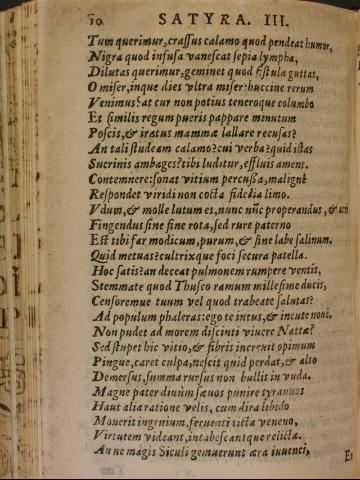 10 SATYRA. III.
Tum querimur, crassus calamo quod pendeat humor,
Nigra quod infusa vanescat sepia lympha,
Dilutas querimur, geminet quod fistula guttas,
O miser, inque dies vltra miser: huccine rerum
Venimus? at cur non potius teneroque columbo
Et similis regum pueris pappare minutum
Poscis, & iratus mammæ lallare recusas?
An tali studeam calamo? cui verba? quid istas
Sucrinis ambages? tibi luditur, effluis amens.
Contemnere: sonat vitium percussa, malignè
Respondet viridi non cocta fidelia limo.
Vdum, & molle lutum es, nunc nũc properandus, &
Fingendus sine fine rota, sed rure paterno
Est tibi far modicum, purum, & sine labe salinum.
Quid metuas? cultrixque foci secura patella.
Hoc satis? an deceat pulmonem rumpere ventis,
Stemmate quod Thusco ramum millesime ducis,
Censoremue tuum vel quod trabeate salutas?
Ad populum phaleras: ego te intus, & in cute noui.
Non pudet ad morem discincti viuere Nattæ?
Sed stupet hic vitio, & fibris increuit opimum
Pingue, caret culpa, nescit quid perdat, & alto
Demersus, summa rursus non bullit in vnda.
Magne pater diuũm sæuos punire tyrannos
Haut alia ratione velis, cum dira libido
Mouerit ingenium, feruenti tincta veneno,
Virtutem videant, intabescantque relicta.
An ne magis Siculi gemuerunt æra iuuenci,
Et